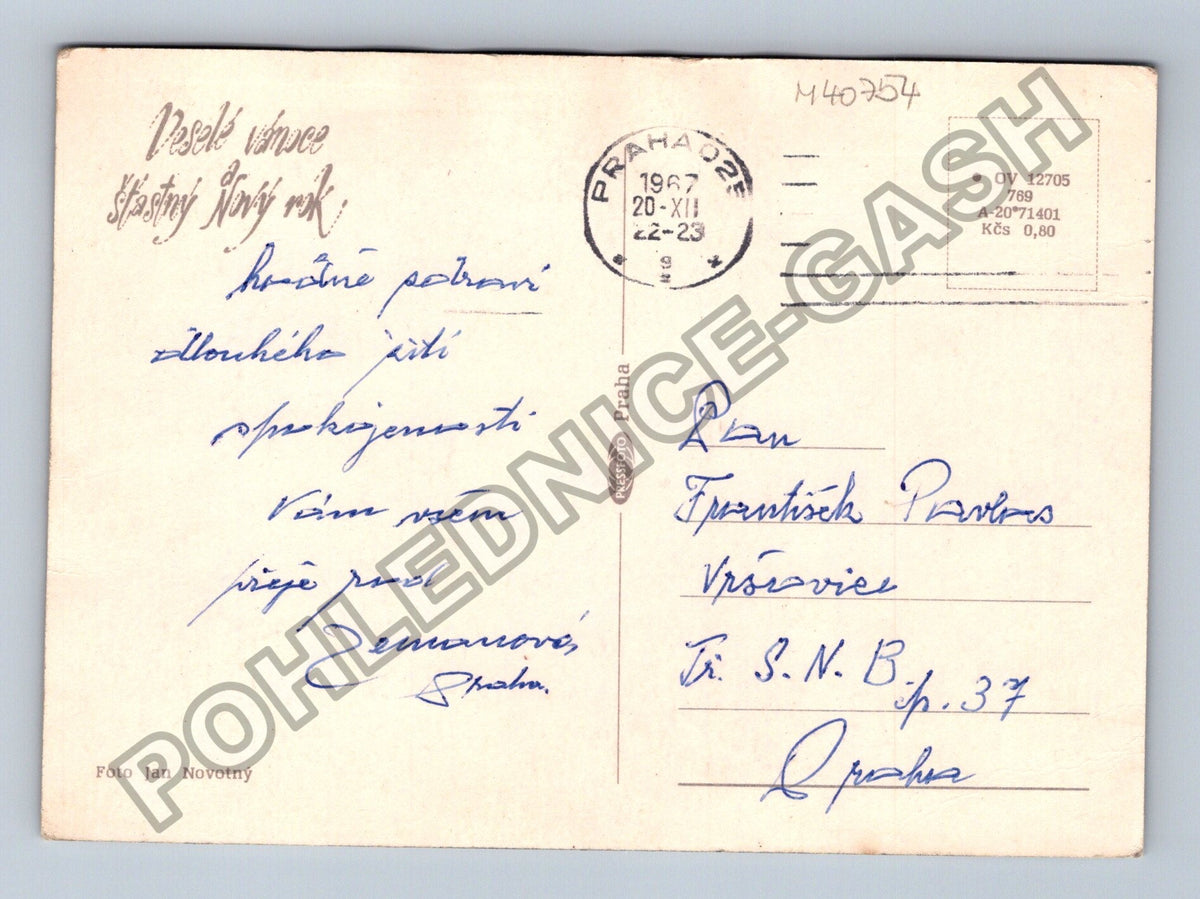 M40754
Veselé vánoce
a
šťastný Nový rok
PRAHA 025
1967
20-XII
22-23
9
OV 12705
769
A-20*71401
Kčs 0,80
hodně zdraví
dlouhého žití
spokojenosti
Vám všem
přeje rod
Zemanová
Praha.
Foto Jan Novotný
PRESSFOTO Praha
Pan
František Pavlas
Vršovice
Tř. S. N. B.
p. 37
Praha
POHLEDNICE-GASH